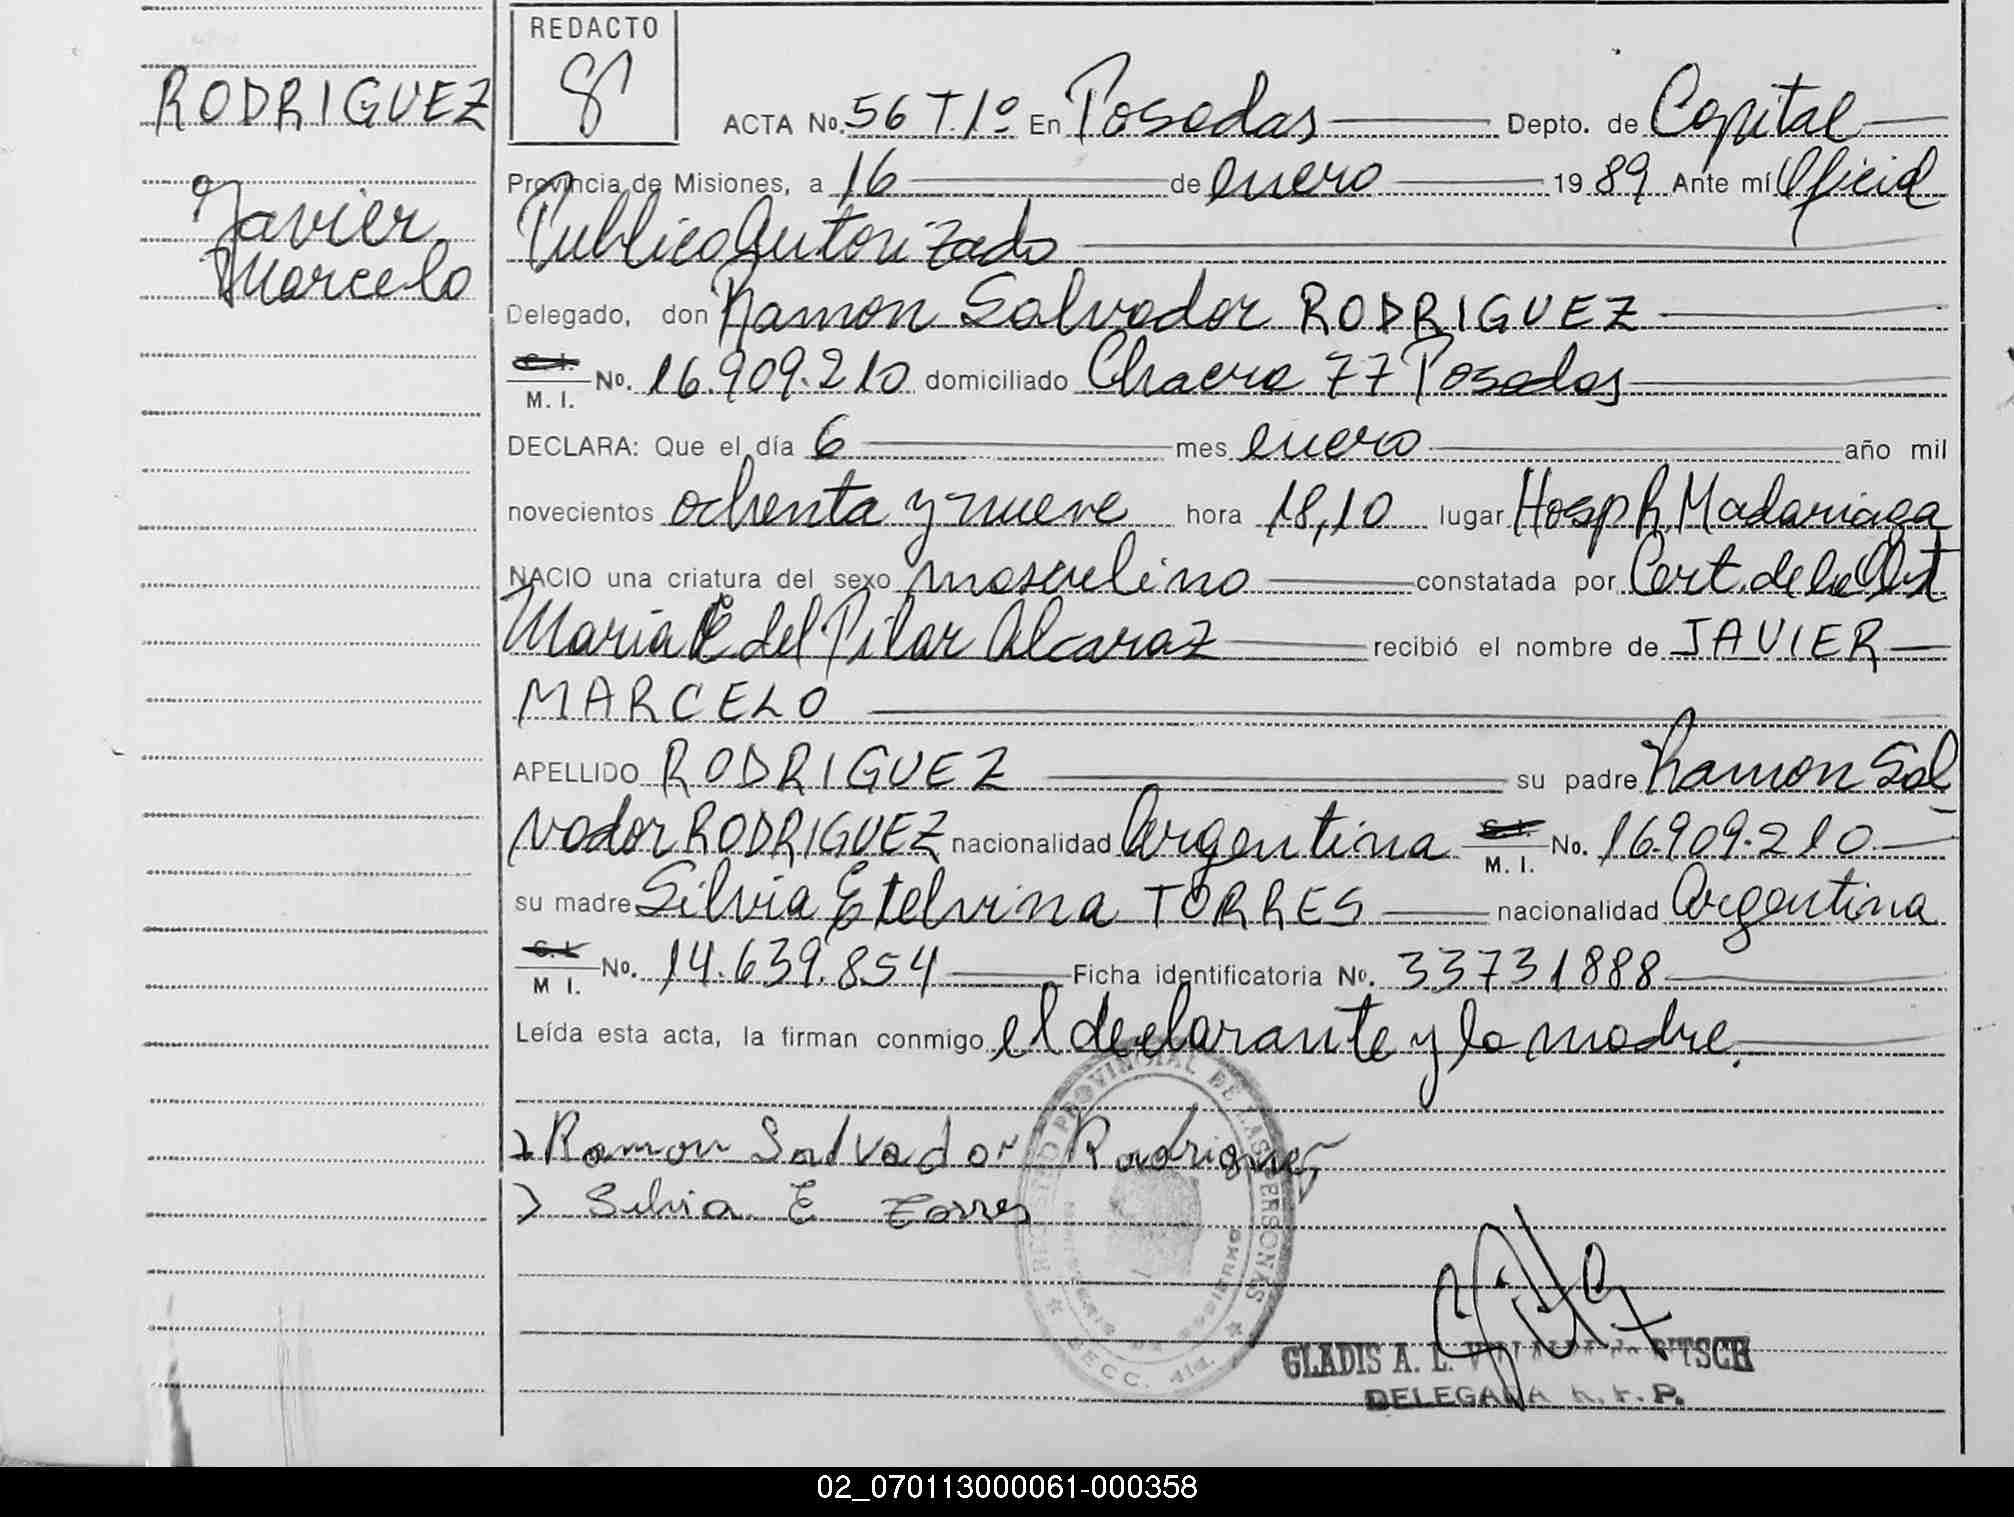 RODRIGUEZ
Javier
Marcelo
REDACTO
ACTA No. 56 T 1º En Posadas Depto. de Capital
Provincia de Misiones, a 16 de enero 19 89 Ante mí Oficial
Publico Autorizado
Delegado, don Ramon Salvador RODRIGUEZ
C. I.
M. I. No. 16.909.210 domiciliado Chacra 77 Posadas
DECLARA: Que el día 6 mes enero año mil
novecientos ochenta y nueve hora 18,10 lugar Hosp R. Madariaga
NACIO una criatura del sexo masculino constatada por Cert. de la Obst
Maria E del Pilar Alcaraz recibió el nombre de JAVIER
MARCELO
APELLIDO RODRIGUEZ su padre Ramon Sal
vador RODRIGUEZ nacionalidad Argentina C. I. M. I. No. 16.909.210.
su madre Silvia Etelvina TORRES nacionalidad Argentina
C. I.
M I. No. 14.639.854 Ficha identificatoria No. 33731888
Leída esta acta, la firman conmigo el declarante y la madre.
Ramon Salvador Rodriguez
Silvia E Torres
REGISTRO PROVINCIAL DE LAS PERSONAS
SECC. 41a.
GLADIS A. L.
DELEGADA R. P. P.
02_070113000061-000358